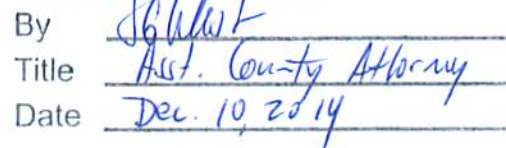 By
Title Asst. County Attorney
Date Dec. 10, 2014